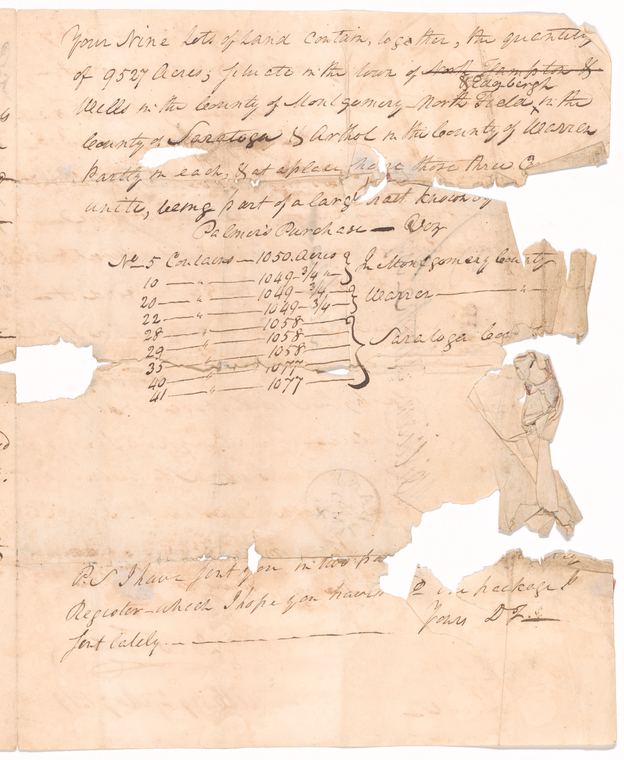 Your Nine Lots of Land Contain, together, the quantity
of 9527 Acres; situate in the town of North Hampton &
& Edinbergh
Wells in the County of Montgomery North Field, in the
County of Saratoga & Arthol in the County of Warren
Partly in each, & at a place where those three
unite, being part of a large known by
Palmer's Purchase — Viz
No 5 Contains — 1050. Acres } In Montgomery County
10 — " — 1049–3/4 "
20 — " — 1049–3/4 — } Warren — "
22 — " — 1049–3/4 —
28 — " — 1058 — } Saratoga
29 — " — 1058
35 — " — 1058
40 — " — 1077
41 — " — 1077 —
P.S I have sent you in two
Register – which I hope you the package I
sent lately. — Yours